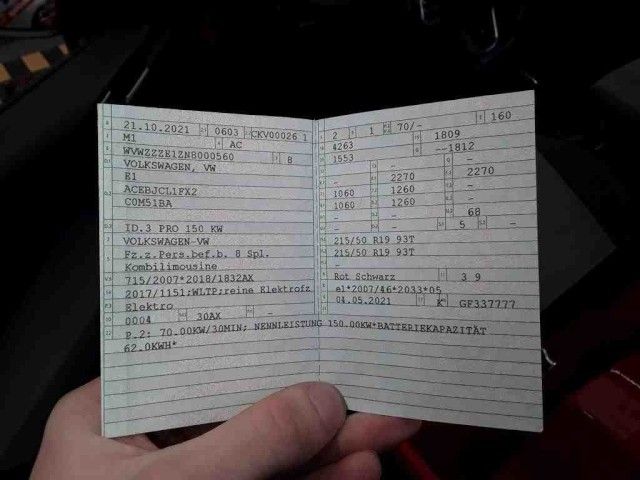 21.10.2021 0603 CKV00026 1
M1 AC
WVWZZZE1ZN8000560 8
VOLKSWAGEN, VW
E1
ACEBJCL1FX2
C0M51BA
ID.3 PRO 150 KW
VOLKSWAGEN-VW
Fz.z.Pers.bef.b. 8 Spl.
Kombilimousine
715/2007*2018/1832AX
2017/1151;WLTP;reine Elektrofz
Elektro
0004 30AX
P.2: 70.00KW/30MIN; NENNLEISTUNG 150.00KW*BATTERIEKAPAZITÄT
62.0KWH*
2 1 70/- 160
4263 1809
1553 --1812
- -
- 2270 2270
1060 1260 -
1060 1260 -
- - 68
- - 5 -
215/50 R19 93T
215/50 R19 93T
-
Rot Schwarz 3 9
e1*2007/46*2033*05
04.05.2021 K GF337777